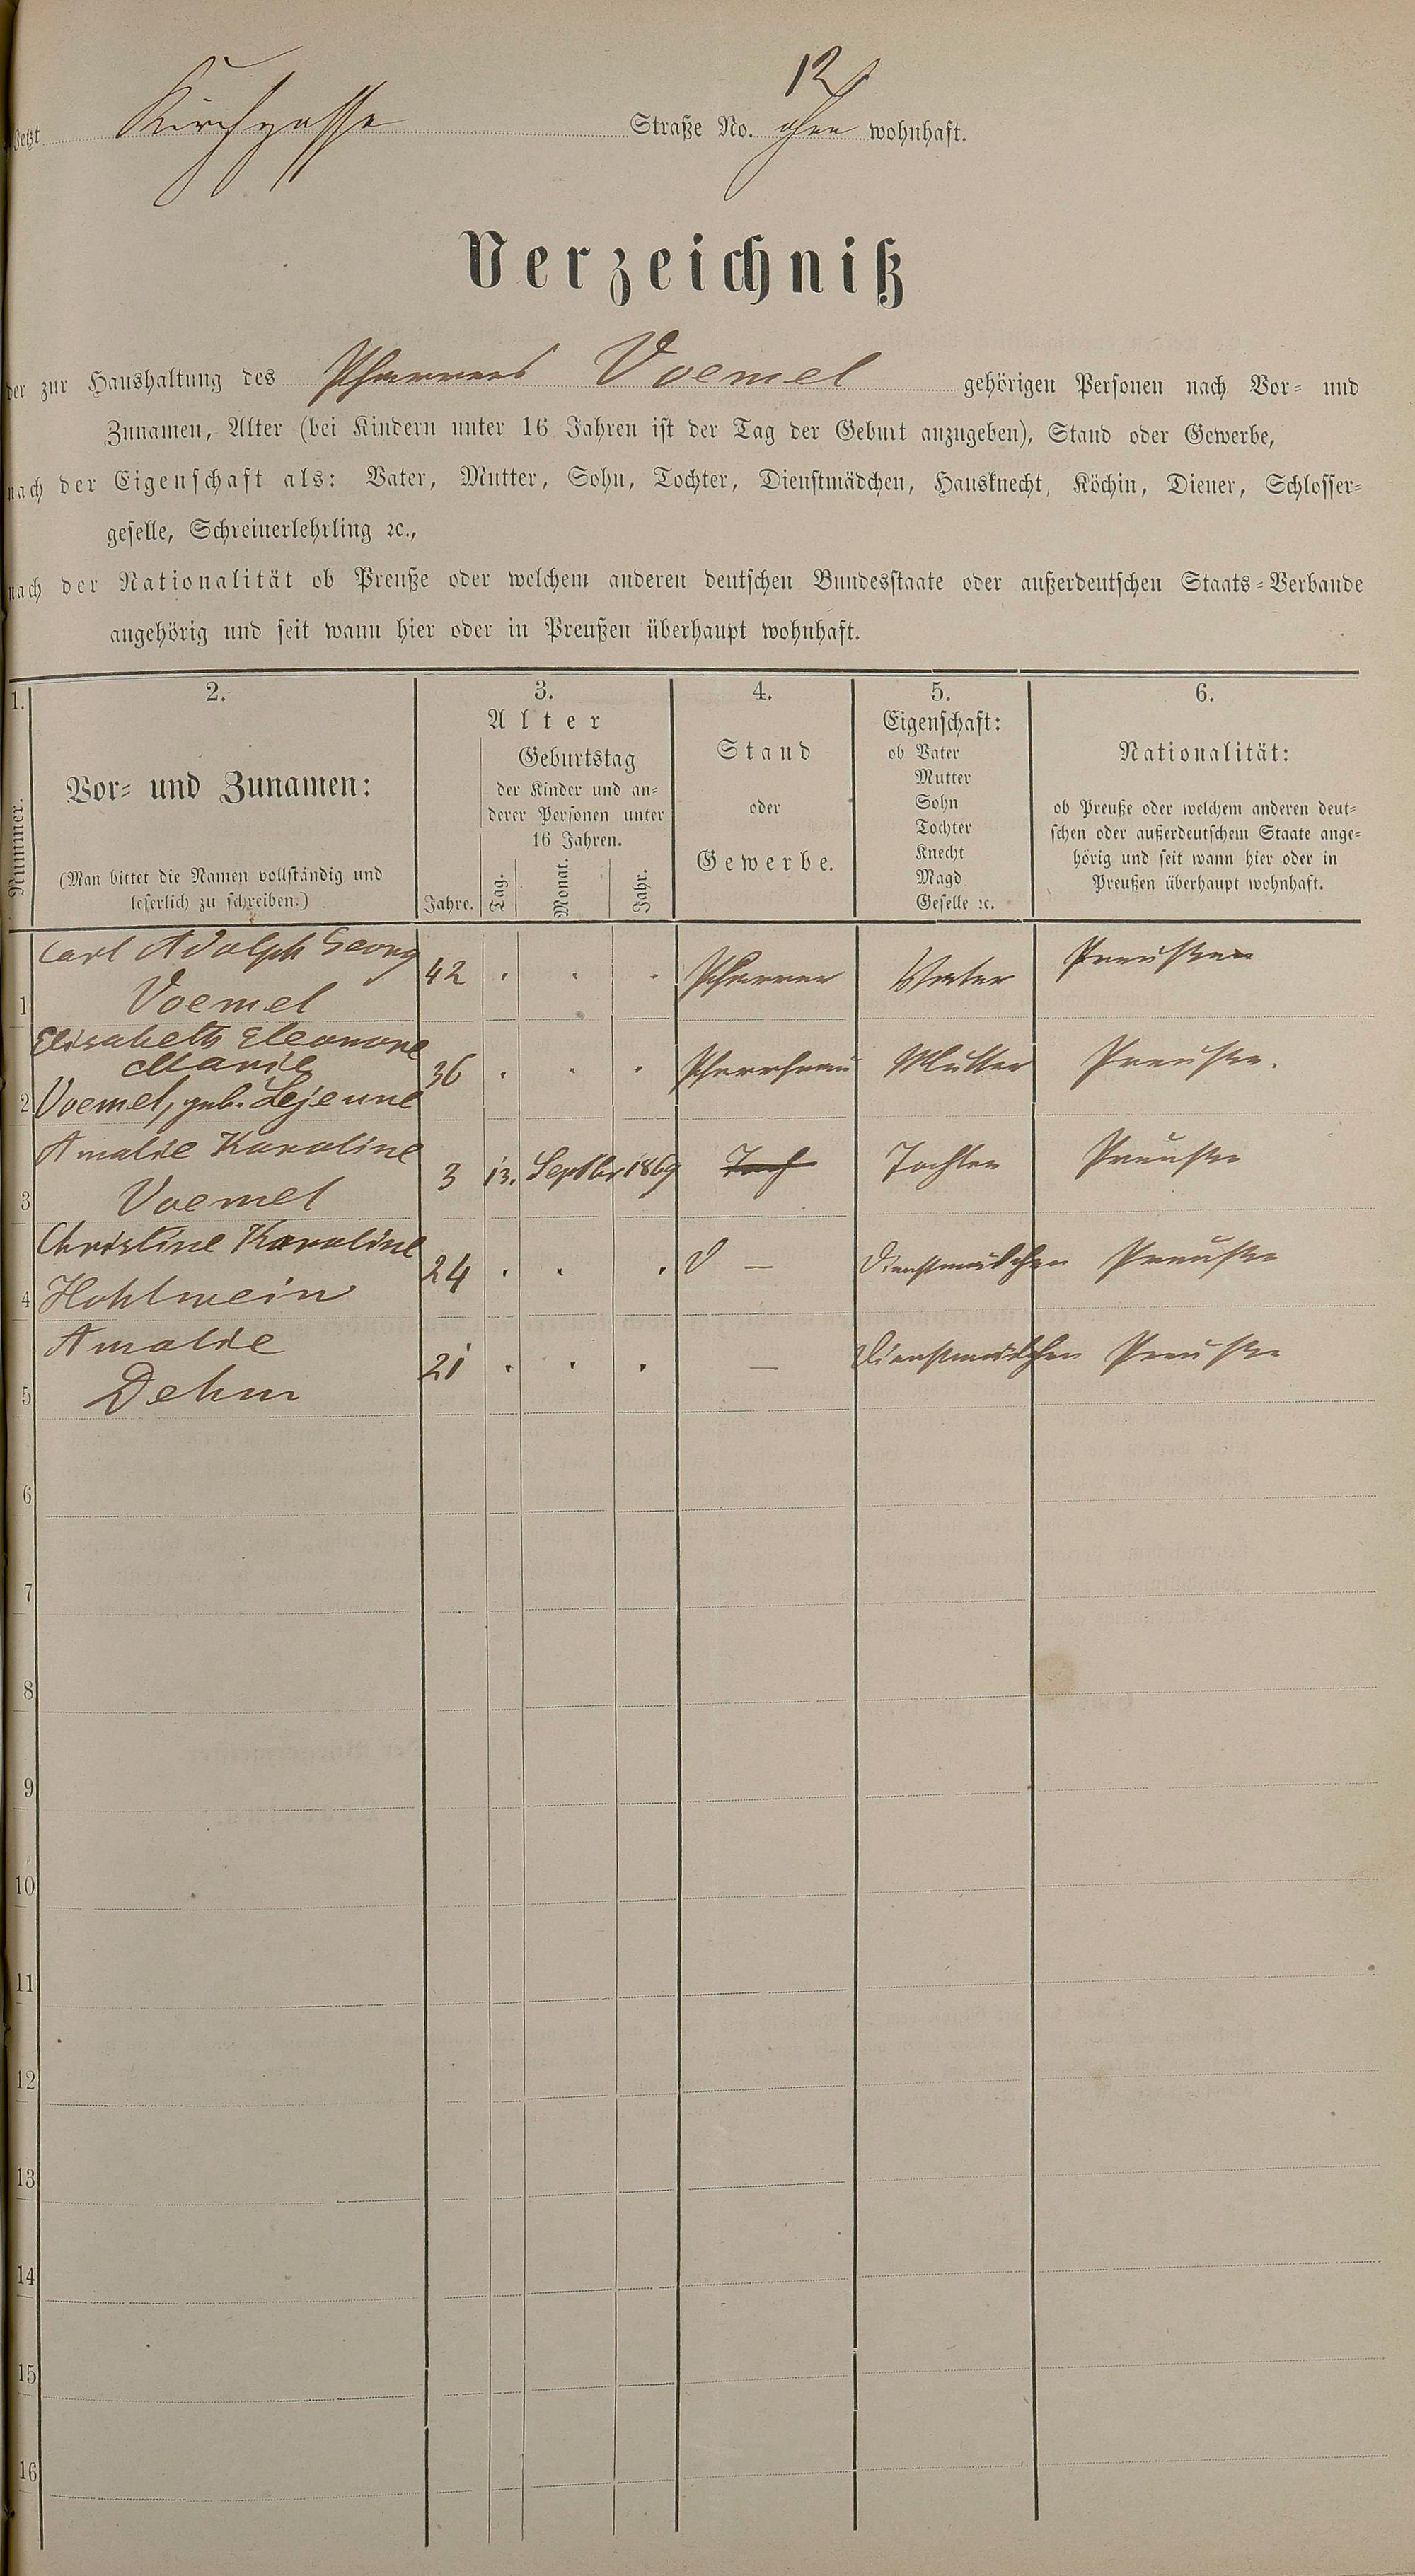 12
Jetzt Kirchgasse Straße No. ohne wohnhaft.
Verzeichniß
der zur Haushaltung des Pfarrers Voemel gehörigen Personen nach Vor- und
Zunamen, Alter (bei Kindern unter 16 Jahren ist der Tag der Geburt anzugeben), Stand oder Gewerbe,
nach der Eigenschaft als: Vater, Mutter, Sohn, Tochter, Dienstmädchen, Hausknecht, Köchin, Diener, Schlosser-
geselle, Schreinerlehrling ꝛc.,
nach der Nationalität ob Preuße oder welchem anderen deutschen Bundesstaate oder außerdeutschen Staats-Verbande
angehörig und seit wann hier oder in Preußen überhaupt wohnhaft.
1.
Nummer.
2.
Vor- und Zunamen:
(Man bittet die Namen vollständig und
leserlich zu schreiben.)
3.
Alter
Jahre.
Geburtstag
der Kinder und an-
derer Personen unter
16 Jahren.
Tag. Monat. Jahr.
4.
Stand
oder
Gewerbe.
5.
Eigenschaft:
ob Vater
Mutter
Sohn
Tochter
Knecht
Magd
Geselle ꝛc.
6.
Nationalität:
ob Preuße oder welchem anderen deut-
schen oder außerdeutschem Staate ange-
hörig und seit wann hier oder in
Preußen überhaupt wohnhaft.
Carl Adolph Georg
1 Voemel 42 Pfarrer Vater Preuße
Elisabeth Eleonore
Marie
2 Voemel, geb. Lejeune 36 Pfarrfrau Mutter Preuße.
Amalie Karoline
3 Voemel 3 13. Septbr 1869 Toch Tochter Preuße
Christine Karoline
4 Hohlwein 24 — Dienstmädchen Preuße
Amalie
5 Dehm 21 — Dienstmädchen Preuße
6
7
8
9
10
11
12
13
14
15
16